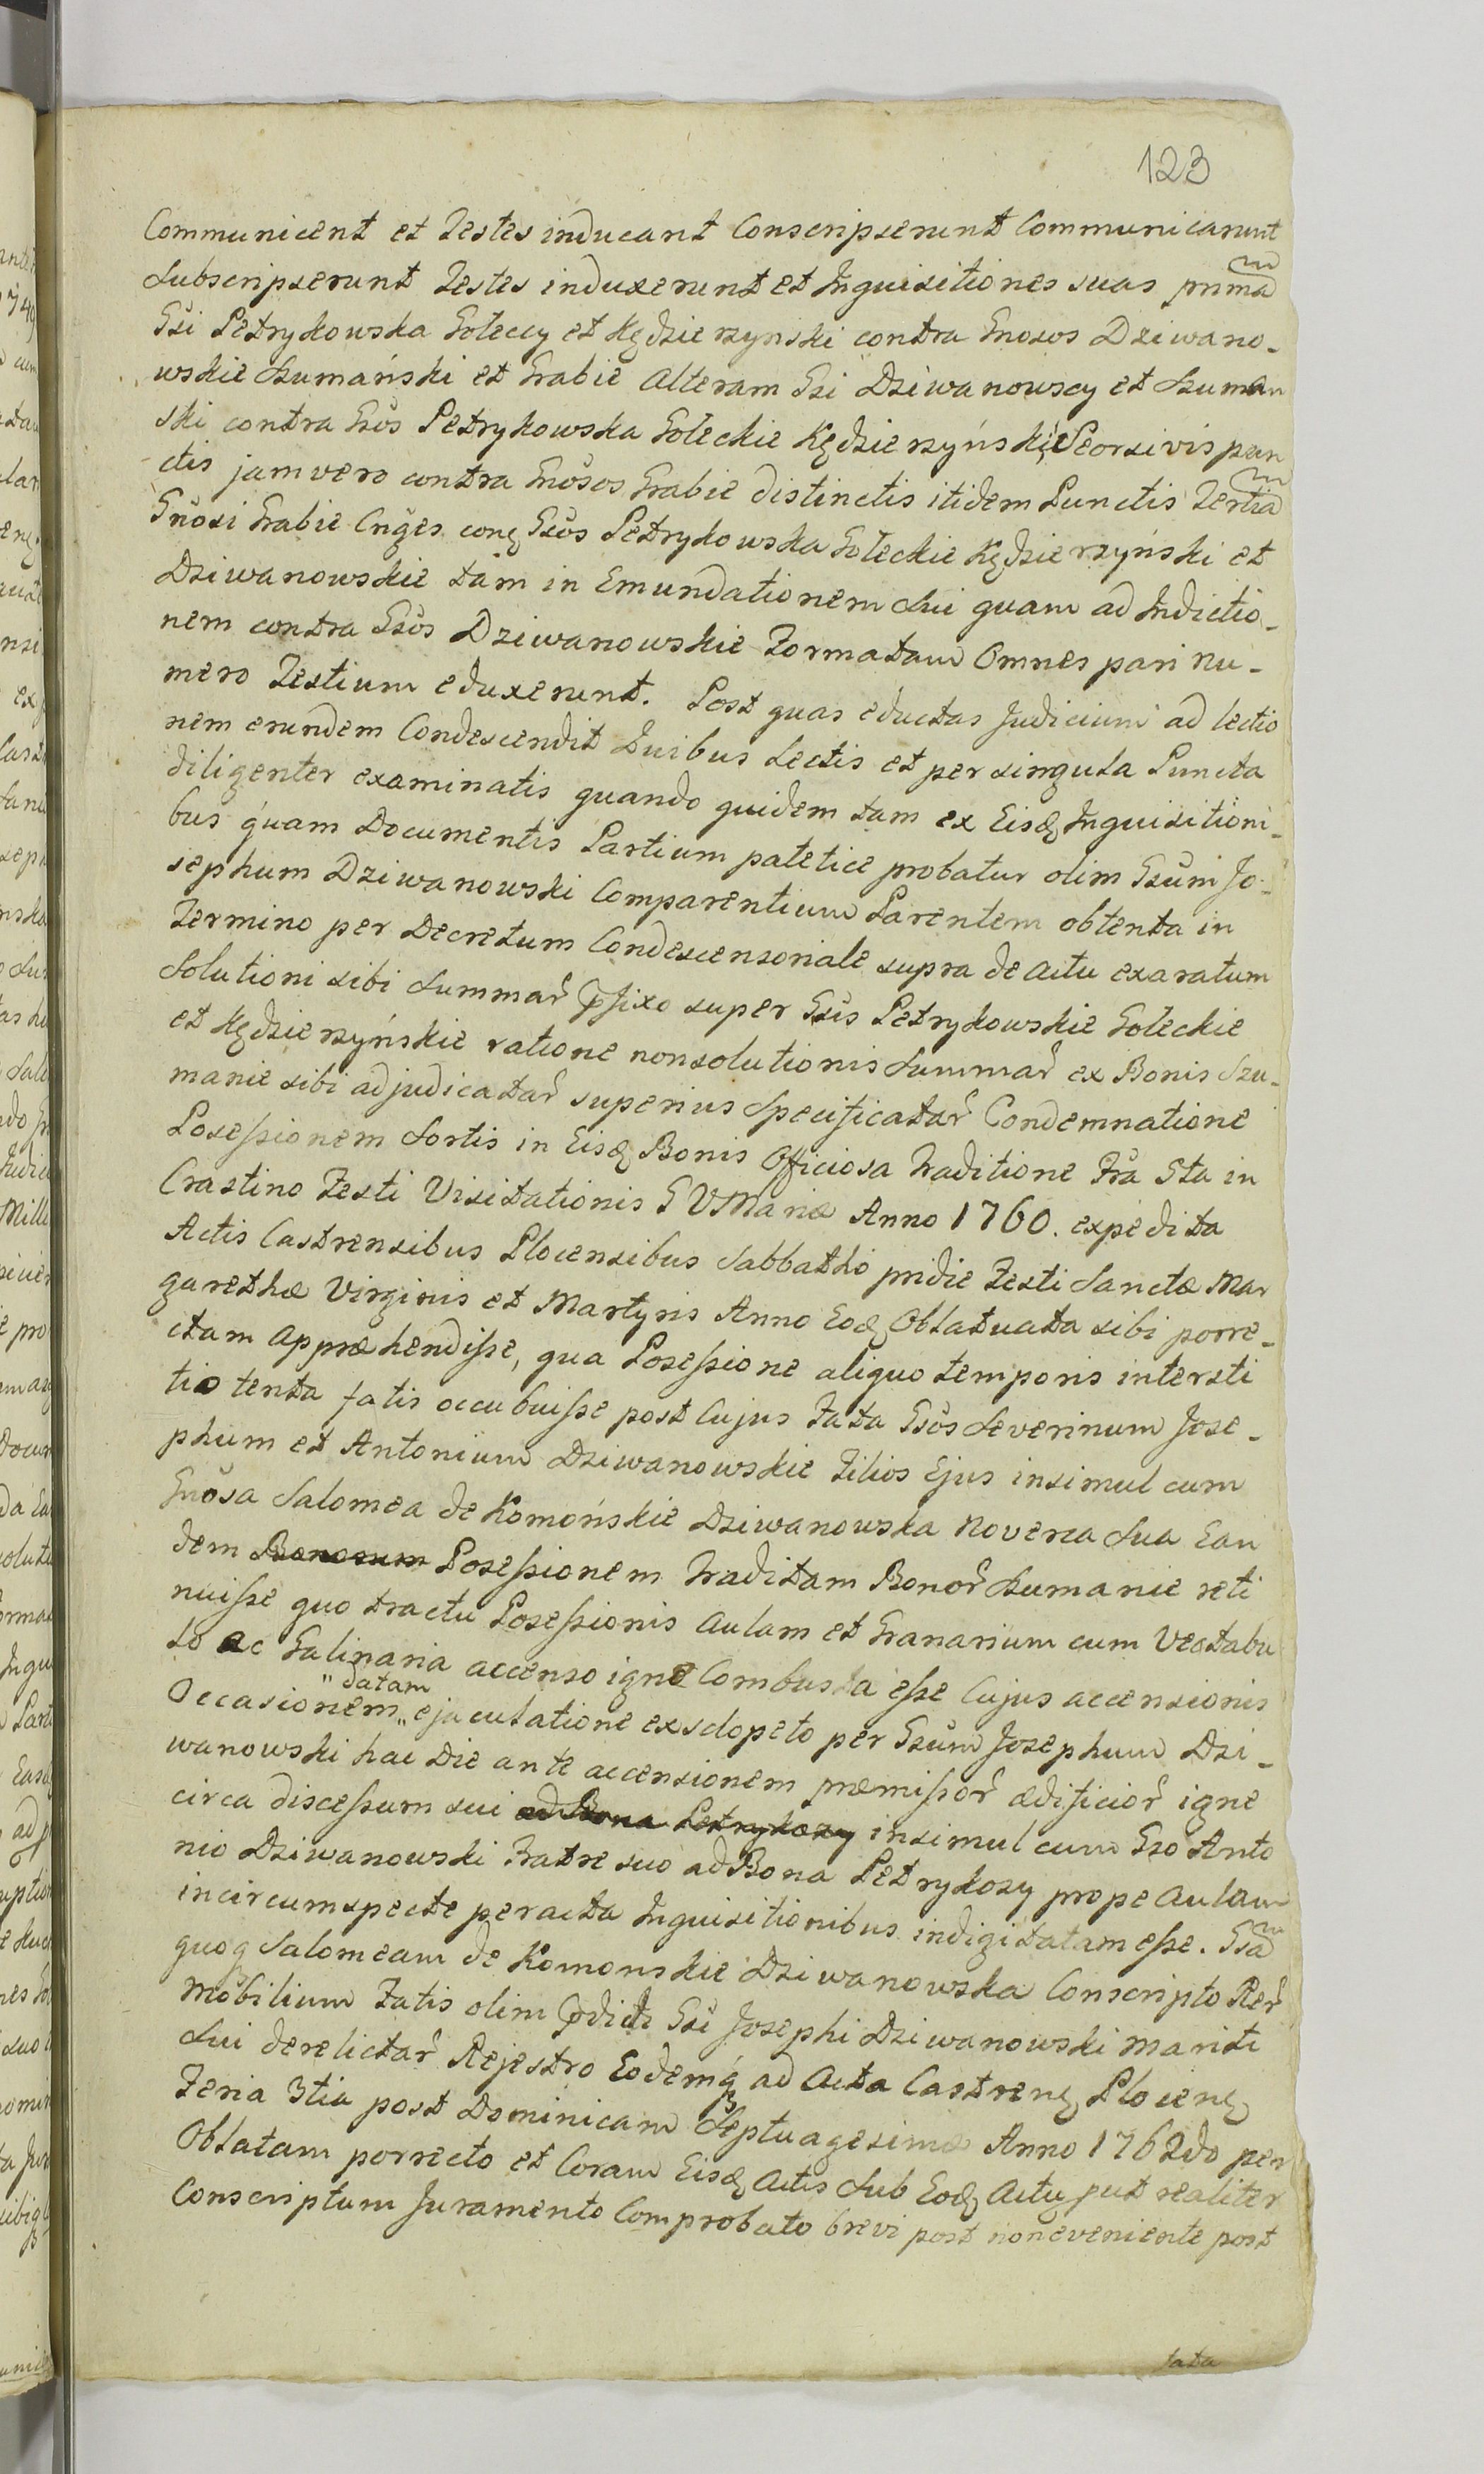 123
Communicent et Testes inducant Conscripserunt Communicarunt
Subscripserunt Testes induxerunt et Inquisitiones suas prima͠
Gsi Petrykowska Gołeccy et Kędzierzynski contra Gnosos Dziwano-
wskie Szumański et Grabie Alteram Gsi Dziwanowscy et Szuman
ski contra Gsos Petrykowska Gołeckie Kędzierzyńskie Seorsivis pun
ctis jam vero contra Gnosos Grabie distinctis itidem Punctis Tertia͠
Gnosi Grabie Cnges conq Gsos Petrykowska Gołeckie Kędzierzyński et
Dziwanowskie tam in Emundationem Sui quam ad Indictio-
nem contra Gsos Dziwanowskie Formatam Omnes pari nu-
mero Testium eduxerunt. Post quas eductas Judicium ad lectio
nem erundem Condescendit Quibus Lectis et per singula Puncta
diligenter examinatis quando quidem tam ex Eisd. Inquisitioni-
bus quam Documentis Partium patetice probatur olim Gsum Jo-
sephum Dziwanowski Comparentium Parentem obtenta in
Termino per Decretum Condescensoriale supra de actu exaratum
Solutioni sibi Summar̃ p̃fixo super Gsis Petrykowskie Gołeckie
et Kędzierzyńskie ratione nonsolutionis Summar̃ ex Bonis Szu-
manie sibi adjudicatar̃ superius Specificatar̃ Condemnatione
Possessionem Sortis in Eisd. Bonis Officiosa Traditione Fra Sta in
Crastino Festi Visitationis B V Mariæ Anno 1760. expedita
Actis Castrensibus Plocensibus Sabbatho pridie Festi Sanctæ Mar
garethæ Virginis et Martyris Anno Eod. Oblatuata sibi porre-
ctam Appræhendisse, qua Posessione aliquo temporis intersti
tio tenta fatis occubuisse post Cujus Fata Gsos Severinum Jose-
phum et Antonium Dziwanowskie Filios Ejus insimul cum
Gnosa Salomea de Komońskie Dziwanowska Noverca Sua Ean
dem Bonorum Posessionem Traditam Bonor̃ Szumanie reti
nuisse quo tractu Posessionis Aulam et Granarium cum Vectabu
lo ac Galinaria accenso igne Combusta esse Cujus accensionis
datam
Occasionem ejaculatione exsclopeto per Gsum Josephum Dzi-
wanowski hac Die ante accensionem præmissor̃ ædificior̃ igne
circa discessum sui ad Bona Petrykozy insimul cum Gso Anto
nio Dziwanowski Fratre suo ad Bona Petrykozy prope Aulam
incircumspecte peracta Inquisitionibus indigitatam esse. Gsa͠
quoq Salomeam de Komonskie Dziwanowska Conscripto Rer̃
Mobilium Fatis olim p̃dicti Gsi Josephi Dziwanowski Mariti
Sui derelictar̃ Rejestro Eodemq ad Acta Castren. Plocen.
Feria 3tia post Dominicam Septuagesimæ Anno 1762do per
Oblatam porrecto et Coram Eisd. Actis Sub Eod. Actu put realiter
Conscriptum Juramento Comprobato brevi post non eveniente post
fata